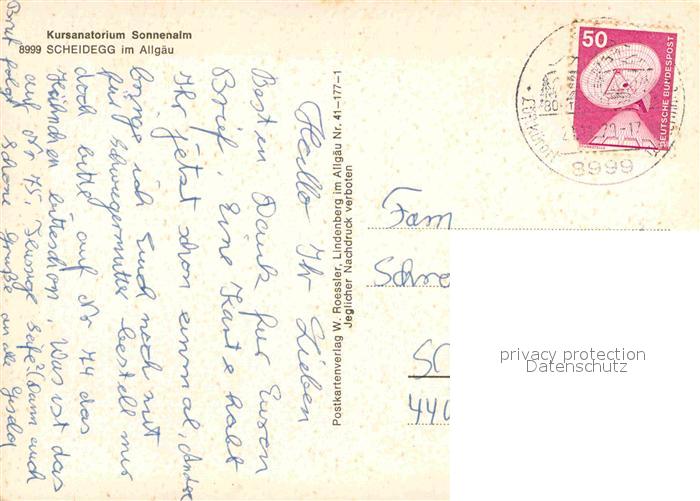 Kursanatorium Sonnenalm
8999 SCHEIDEGG im Allgäu
50
DEUTSCHE BUNDESPOST
8999
Postkartenverlag W. Roessler, Lindenberg im Allgäu Nr. 41-177-1
Jeglicher Nachdruck verboten
Hallo Ihr Lieben
Besten Dank für Euren
Brief. Eine Karte habt
Ihr jetzt schon einmal,
bringe ich Euch noch mit
für Schwiegermutter bestell mir
doch bitte auf Nr 74 das
Hähnchen bitteschön. Was ist das
auf Nr 75, flüssige Seife? (Dann auch
Brief folgt Schöne Grüße an die
Fam
Schre
SC
440
privacy protection
Datenschutz